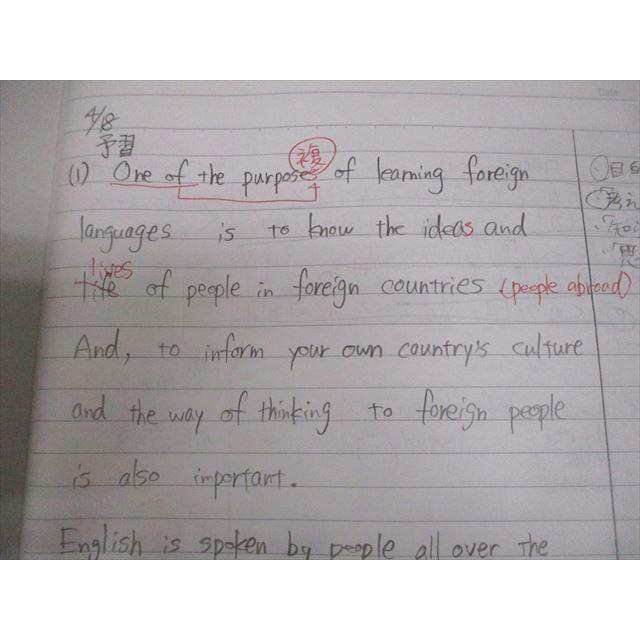 Date
4/8
予習
複
(1) One of the purposes of learning foreign
languages is to know the ideas and
lives
life of people in foreign countries (people abroad)
And, to inform your own country's culture
and the way of thinking to foreign people
is also important.
English is spoken by people all over the